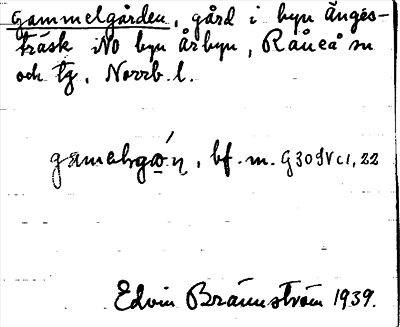 Gammelgården, gård i byn Änges-
träsk NO byn Årbyn, Råneå sn
och tg, Norrb. l.
bf. m. G309Vc1, 22
Edvin Brännström 1939.